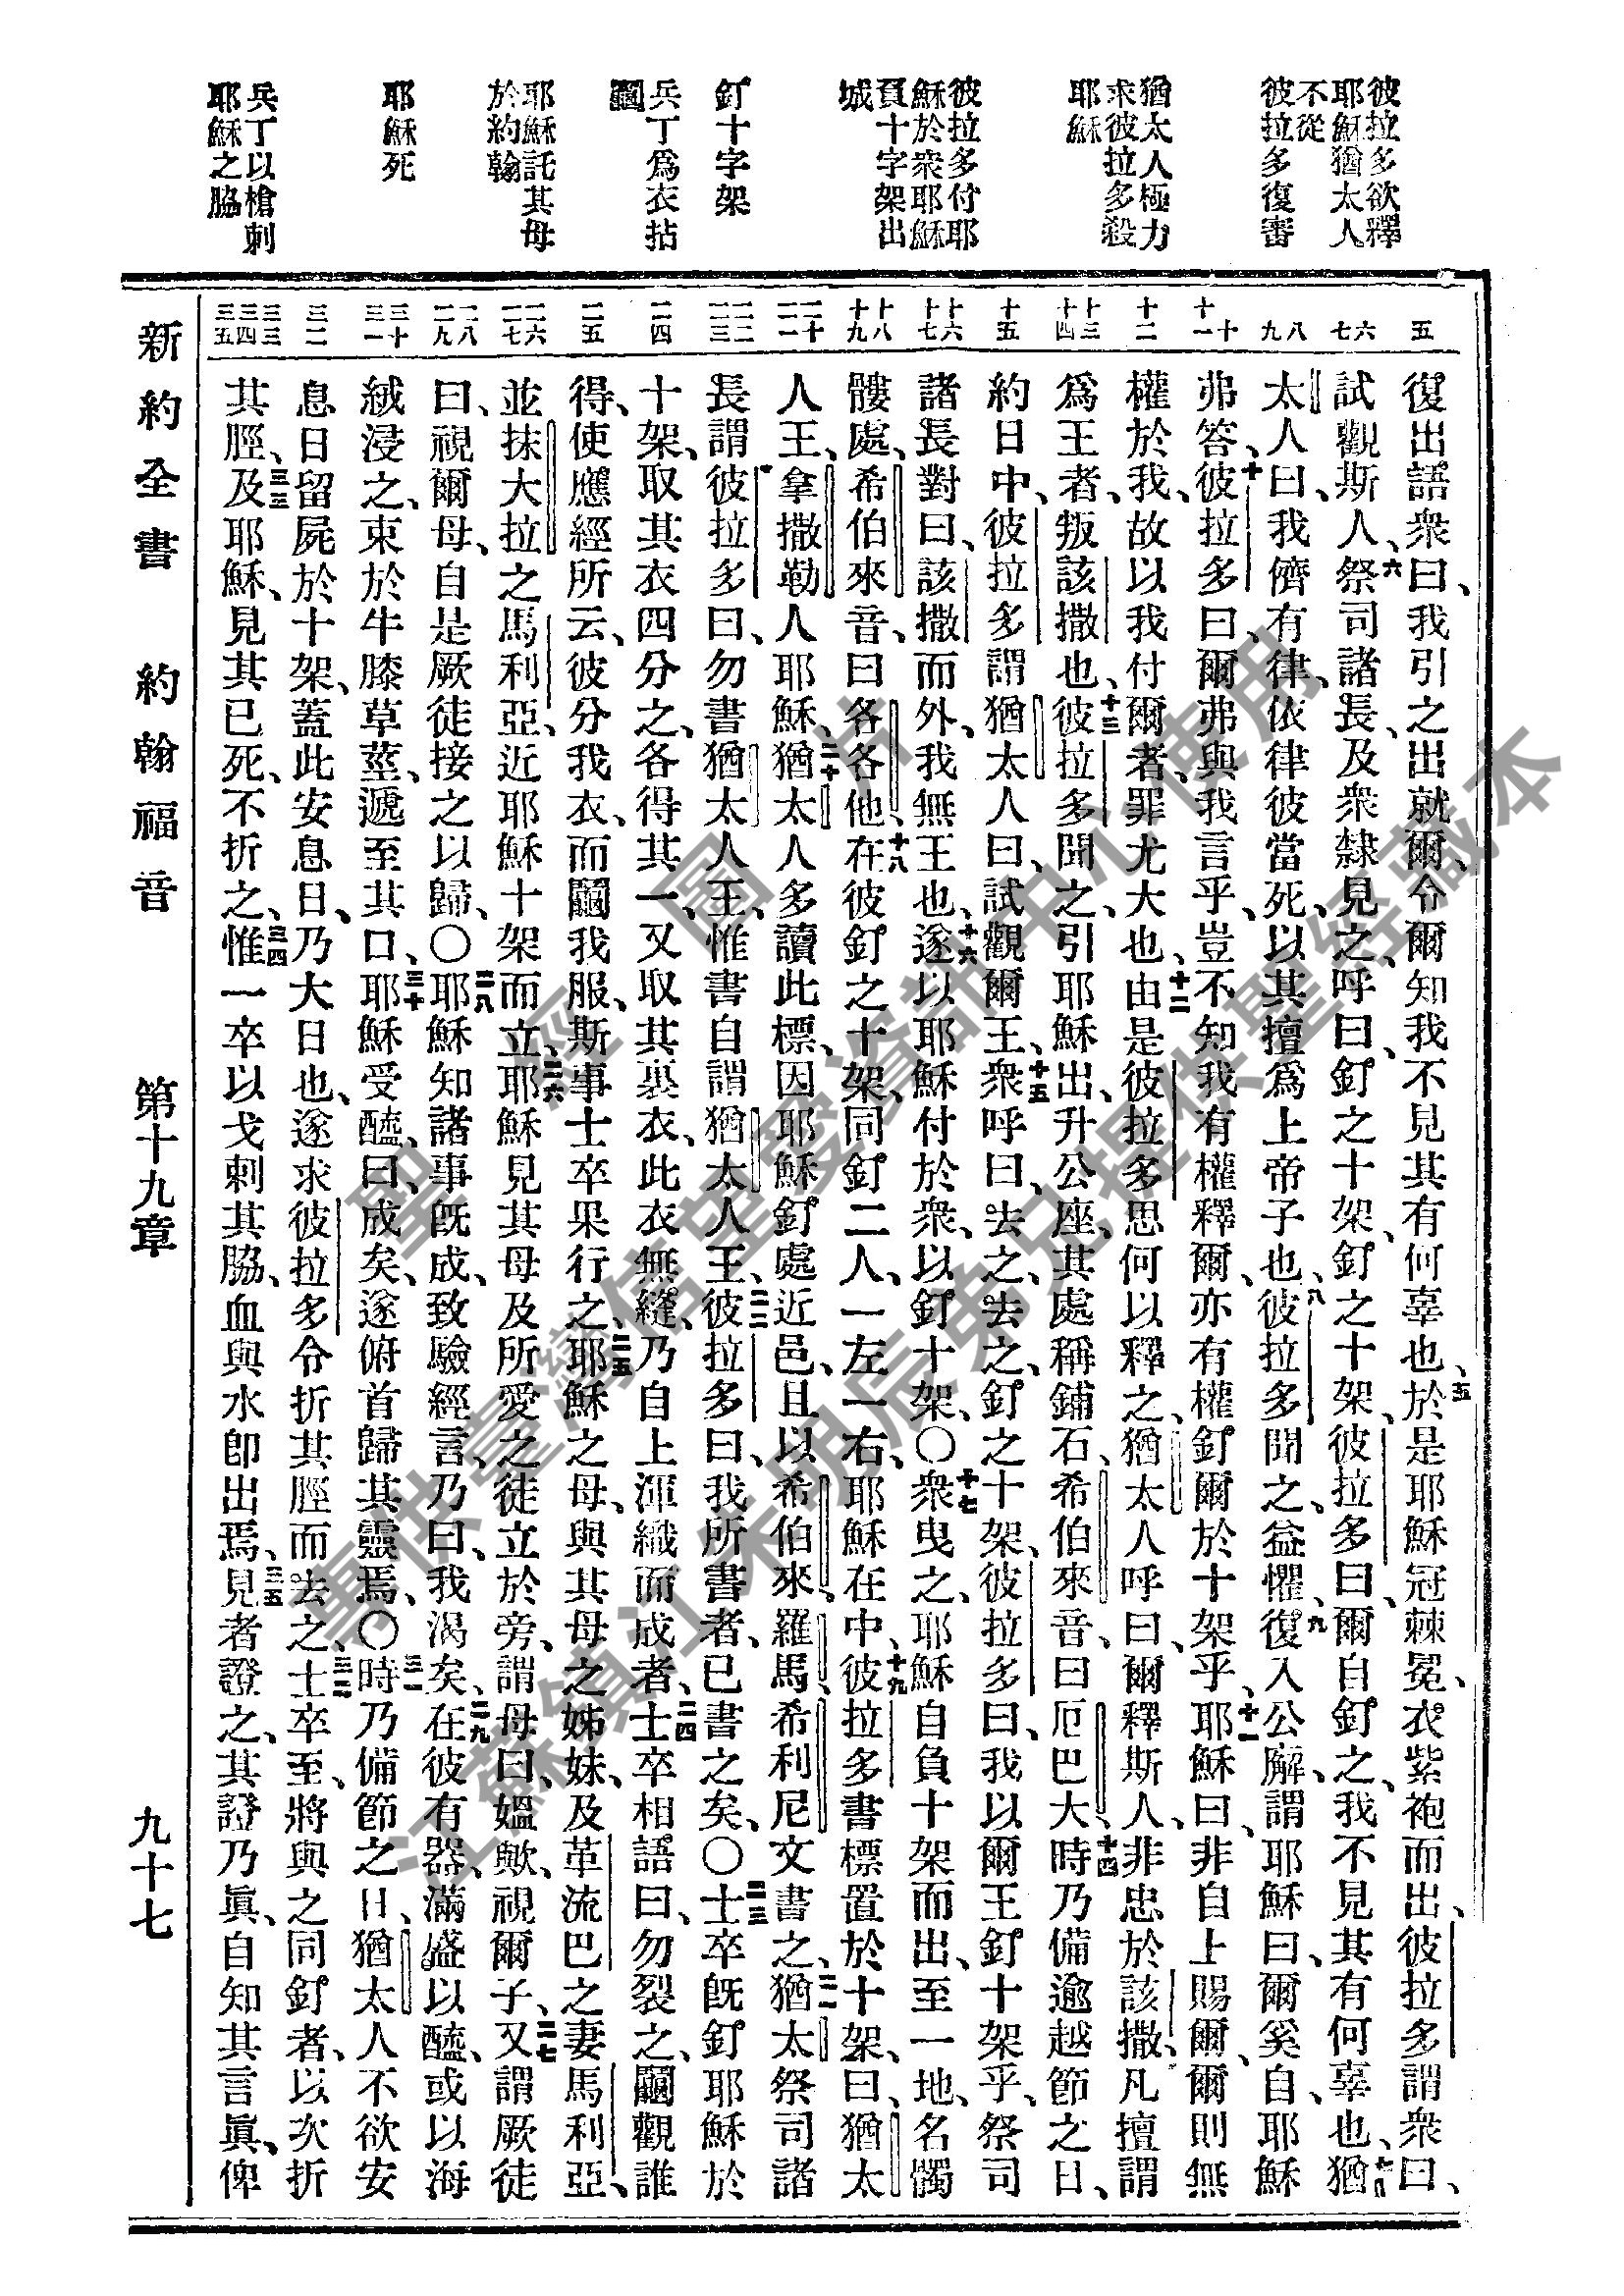 彼拉多欲釋
耶穌猶太人
不從
彼拉多復審
猶太人極力
求彼拉多殺
耶穌
彼拉多付耶
穌於衆耶穌
負十字架出
城
釘十字架
兵丁爲衣拈
鬮
耶穌託其母
於約翰
耶穌死
兵丁以槍刺
耶穌之脇
五
六
七
八
九
十
十一
十二
十三
十四
十五
十六
十七
十八
十九
二十
二一
二二
二三
二四
二五
二六
二七
二八
二九
三十
三一
三二
三三
三四
三五
復出語衆曰、我引之出就爾、令爾知我不見其有何辜也、五於是耶穌冠棘冕、衣紫袍而出、彼拉多謂衆曰、
試觀斯人、六祭司諸長、及衆隸見之、呼曰、釘之十架、釘之十架、彼拉多曰、爾自釘之、我不見其有何辜也、七猶
太人曰、我儕有律、依律彼當死、以其擅爲上帝子也、八彼拉多聞之、益懼、九復入公廨、謂耶穌曰、爾奚自、耶穌
弗答、十彼拉多曰、爾弗與我言乎、豈不知我有權釋爾、亦有權釘爾於十架乎、十一耶穌曰、非自上賜爾、爾則無
權於我、故以我付爾者、罪尤大也、十二由是彼拉多思何以釋之、猶太人呼曰、爾釋斯人、非忠於該撒、凡擅謂
爲王者、叛該撒也、十三彼拉多聞之、引耶穌出、升公座、其處稱鋪石、希伯來音、曰厄巴大、十四時乃備逾越節之日、
約日中、彼拉多謂猶太人曰、試觀爾王、十五衆呼曰、去之、去之、釘之十架、彼拉多曰、我以爾王釘十架乎、祭司
諸長對曰、該撒而外、我無王也、十六遂以耶穌付於衆、以釘十架、〇十七衆曳之、耶穌自負十架而出、至一地、名髑
髏處、希伯來音、曰各各他、十八在彼釘之十架、同釘二人、一左一右、耶穌在中、十九彼拉多書標置於十架、曰、猶太
人王、拿撒勒人耶穌、二十猶太人多讀此標、因耶穌釘處近邑、且以希伯來、羅馬、希利尼文書之、二一猶太祭司諸
長謂彼拉多曰、勿書猶太人王、惟書自謂猶太人王、二二彼拉多曰、我所書者、已書之矣、〇二三士卒旣釘耶穌於
十架、取其衣四分之、各得其一、又取其裏衣、此衣無縫、乃自上渾織而成者、二四士卒相語曰、勿裂之、鬮觀誰
得、使應經所云、彼分我衣、而鬮我服、斯事士卒果行之、二五耶穌之母、與其母之姊妹、及革流巴之妻馬利亞、
並抹大拉之馬利亞、近耶穌十架而立、二六耶穌見其母及所愛之徒立於旁、謂母曰、媼歟、視爾子、二七又謂厥徒
曰、視爾母、自是厥徒接之以歸、〇二八耶穌知諸事旣成、致驗經言、乃曰、我渴矣、二九在彼有器、滿盛以醯、或以海
絨浸之、束於牛膝草莖、遞至其口、三十耶穌受醯、曰、成矣、遂俯首歸其靈焉、〇三一時乃備節之日、猶太人不欲安
息日留屍於十架、蓋此安息日、乃大日也、遂求彼拉多令折其脛而去之、三二士卒至、將與之同釘者、以次折
其脛、三三及耶穌、見其已死、不折之、三四惟一卒以戈刺其脇、血與水卽出焉、三五見者證之、其證乃眞、自知其言眞、俾
新約全書　約翰福音　第十九章　九十七
聖經圖片
專供臺灣信望愛資訊中心使用
江蘇鎮江朱明辰弟兄提供聖經藏本